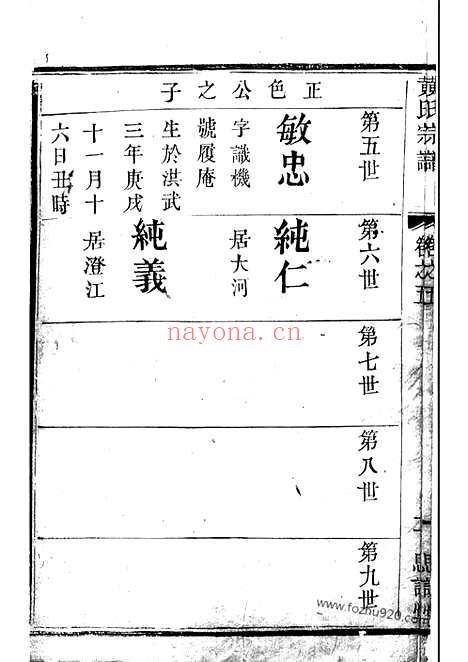 黃氏宗譜
卷之五
第五世
第六世
第七世
第八世
第九世
正色公之子
敏忠
字識機
號履庵
生於洪武
三年庚戌
十一月十
六日丑時
純仁
居大河
純義
居澄江
nayona.cn
www.fozhu920.com